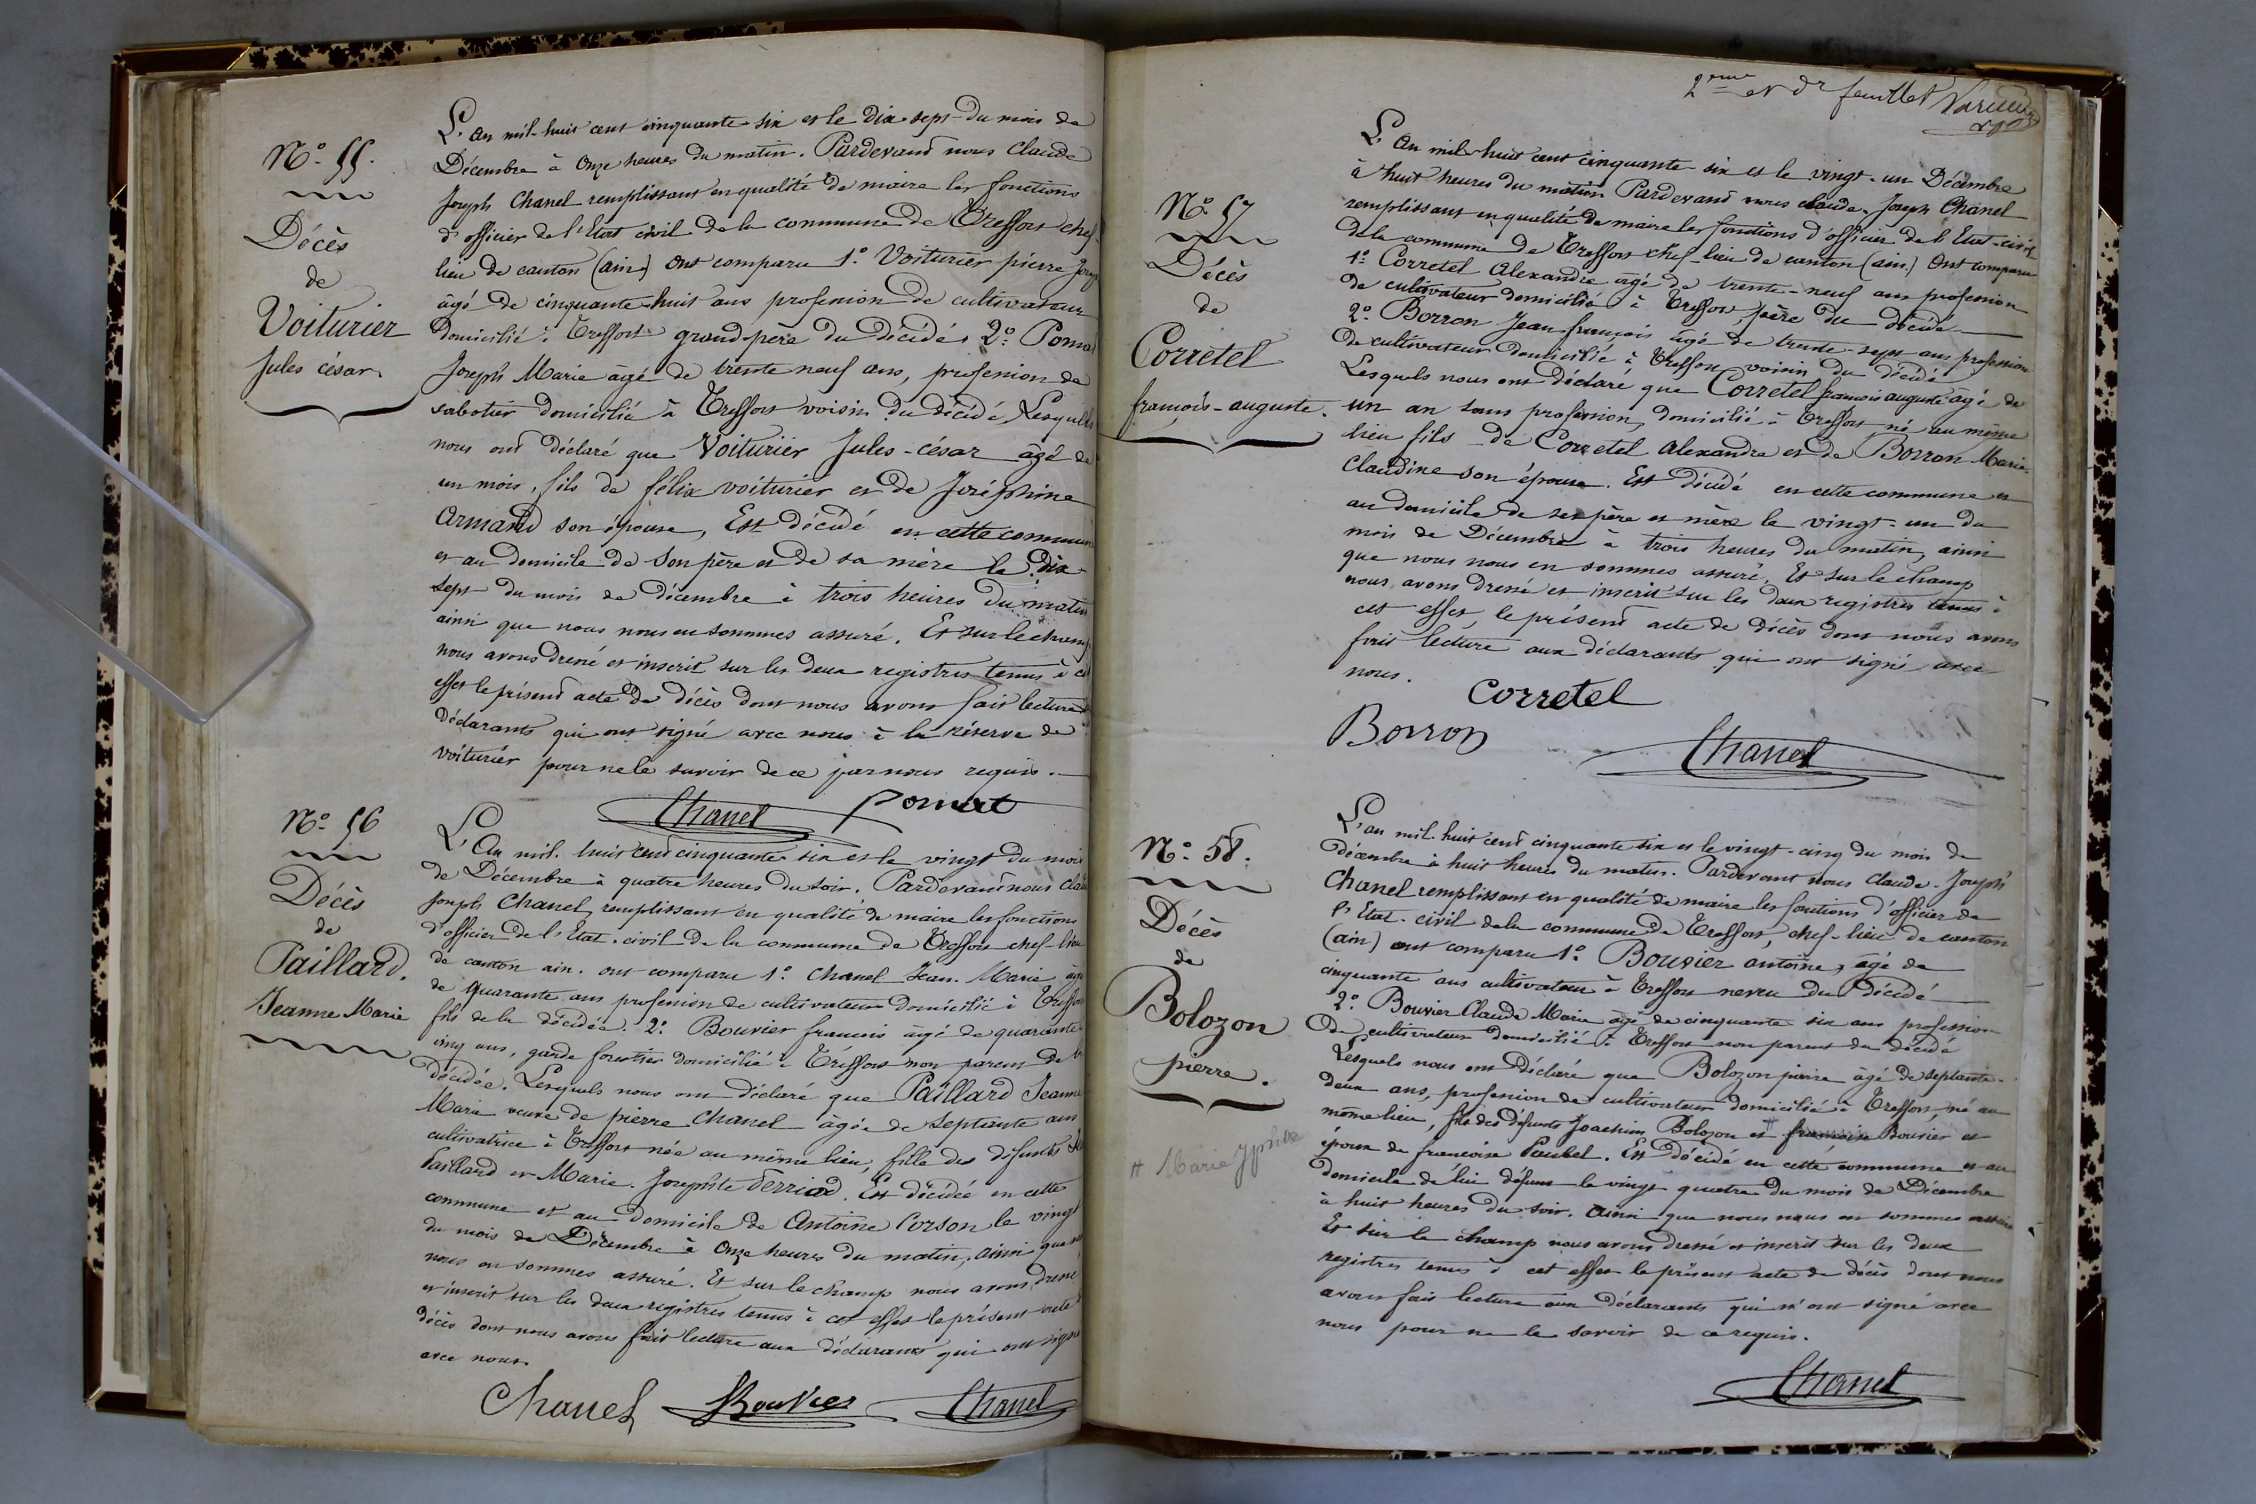 N° 55.
Décès
de
Voiturier
Jules césar.
L'an mil-huit cent cinquante-six et le Dix-sept du mois de
Décembre à Onze heures du matin. Pardevant nous Claude
Joseph Chanel remplissant en qualité de maire les fonctions
d'officier de l'Etat civil de la commune de Treffort chef-
lieu de canton (ain) Ont comparu 1° Voiturier pierre
âgé de cinquante-huit ans profession de cultivateur
domicilié à Treffort grand-père du décédé, 2°
Joseph Marie âgé de trente neuf ans, profession de
sabotier domicilié à Treffort voisin du décédé, Lesquels
nous ont déclaré que Voiturier Jules-césar âgé de
un mois, fils de félix voiturier et de Joséphine
Armand son épouse, Est décédé en cette commune
et au domicile de son père et de sa mère le dix-
sept du mois de décembre à trois heures du matin
ainsi que nous nous en sommes assuré. Et sur le champ
nous avons dressé et inscrit sur les deux registres tenus à cet
effet le présent acte de décès dont nous avons fait lecture
Déclarants qui ont signé avec nous à la réserve de
voiturier pour ne le savoir de ce par nous requis.
Chanel
N° 56
Décès
de
Paillard.
Jeanne Marie
L'An mil-huit cent cinquante-six et le vingt du mois
de Décembre à quatre heures du soir. Pardevant nous
Joseph Chanel, remplissant en qualité de maire les fonctions
d'officier de l'Etat-civil de la commune de Treffort chef-lieu
de canton ain. ont comparu 1° Chanel Jean-Marie âgé
de quarante ans profession de cultivateur domicilié à Treffort
fils de la décédée. 2° Bouvier francois âgé de quarante-
cinq ans, garde forestier domicilié à Treffort non parent de la
décédée. Lesquels nous ont déclaré que Paillard Jeanne
Marie veuve de pierre Chanel âgée de septante ans
cultivatrice à Treffort née au même lieu, fille des défunts
Paillard et Marie-Josephte Perriod. Est décédée en cette
commune et au domicile de Antoine Corson le vingt
du mois de Décembre à Onze heures du matin, ainsi que
nous en sommes assuré. Et sur le champ nous avons dressé
et inscrit sur les deux registres tenus à cet effet le présent acte
décès dont nous avons fait lecture aux déclarants qui ont signé
avec nous.
Chanel Bouvier Chanel
2ème et dr feuillet
N° 57
Décès
de
Corretel
françois-auguste.
L'An mil-huit cent cinquante-six et le vingt-un Décembre
à huit heures du matin Pardevant nous claude-Joseph Chanel
remplissant en qualité de maire les fonctions d'officier de l'Etat-civil
de la commune de Treffort chef-lieu de canton (ain) Ont comparu
1° Corretel Alexandre âgé de trente-neuf ans profession
de cultivateur domicilié à Treffort, père du décédé
2° Borron Jean-françois âgé de trente-sept ans profession
de cultivateur domicilié à Treffort voisin du décédé
Lesquels nous ont déclaré que Corretel francois auguste âgé de
un an sans profession, domicilié à Treffort né au même
lieu fils de Corretel Alexandre et de Borron Marie-
Claudine son épouse. Est décédé en cette commune et
au domicile de ses père et mère le vingt-un du
mois de Décembre à trois heures du matin, ainsi
que nous nous en sommes assuré. Et sur le champ
nous avons dressé et inscrit sur les deux registres tenus à
cet effet, le présent acte de décès dont nous avons
fait lecture aux déclarants qui ont signé avec
nous.
Corretel
Borron
Chanel
N° 58.
Décès
de
Bolozon
pierre.
L'an mil-huit cent cinquante six et le vingt-cinq du mois de
décembre à huit heures du matin. Pardevant nous Claude-Joseph
Chanel remplissant en qualité de maire les fontions d'officier de
l'Etat-civil de la commune de Treffort, chef-lieu de canton
(ain) ont comparu 1° Bouvier antoine, âgé de
cinquante ans cultivateur à Treffort neveu du décédé
2° Bouvier Claude Marie âgé de cinquante-six ans profession
de cultivateur domicilié à Treffort non parent du décédé
Lesquels nous ont déclaré que Bolozon pierre âgé de septante-
deux ans, profession de cultivateur domicilié à Treffort, né au
même lieu, fils des défunts Joachim Bolozon et # francoise Bouvier et
# Marie Jphte
époux de francoise Poubel. Est décédé en cette commune et au
domicile de lui défunt le vingt quatre du mois de Décembre
à huit heures du soir. Ainsi que nous nous en sommes assuré
Et sur le champ nous avons dressé et inscrit sur les deux
registres tenus à cet effet le présent acte de décès dont nous
avons fait lecture aux déclarants qui n'ont signé avec
nous pour ne le savoir de ce requis.
Chanel